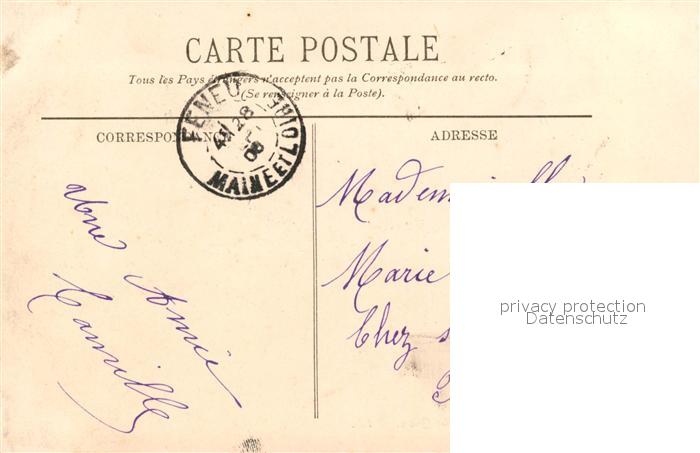 CARTE POSTALE
Tous les Pays étrangers n'acceptent pas la Correspondance au recto.
(Se renseigner à la Poste).
CORRESPONDANCE
ADRESSE
FENEU
28
06
MAINE ET LOIRE
Amie
Camille
Mademoiselle
Marie
Chez
privacy protection
Datenschutz